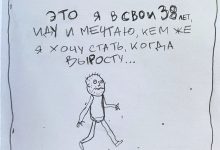 ЭТО Я В СВОИ 38 ЛЕТ,
ИДУ И МЕЧТАЮ, КЕМ ЖЕ
Я ХОЧУ СТАТЬ, КОГДА
ВЫРОСТУ...